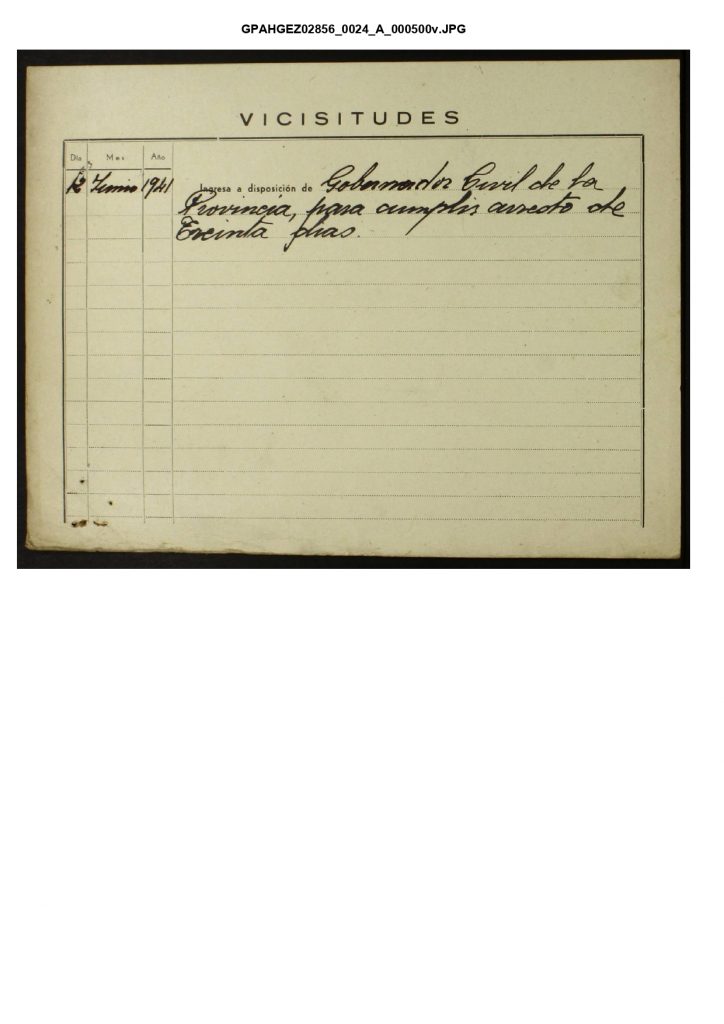 GPAHGEZ02856_0024_A_000500v.JPG
VICISITUDES
Día Mes Año
12 Junio 1941 Ingresa a disposición de Gobernador Civil de la
Provincia, para cumplir arresto de
Treinta días.